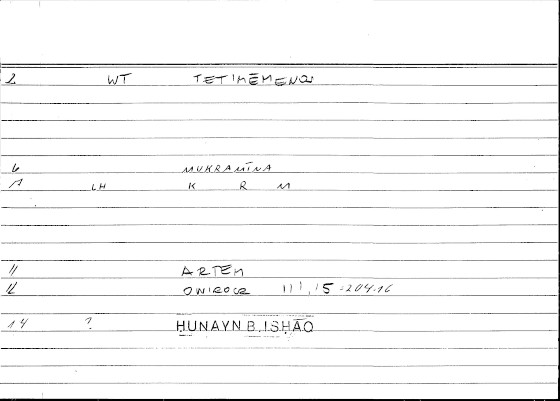 2 WT TETIMĒMENOS
6 MUKRAMĪNA
7 LH K R M
11 ARTEM
12 ONIROCR 111,15 = 204.16
14 ? HUNAYN B.ISḤĀQ